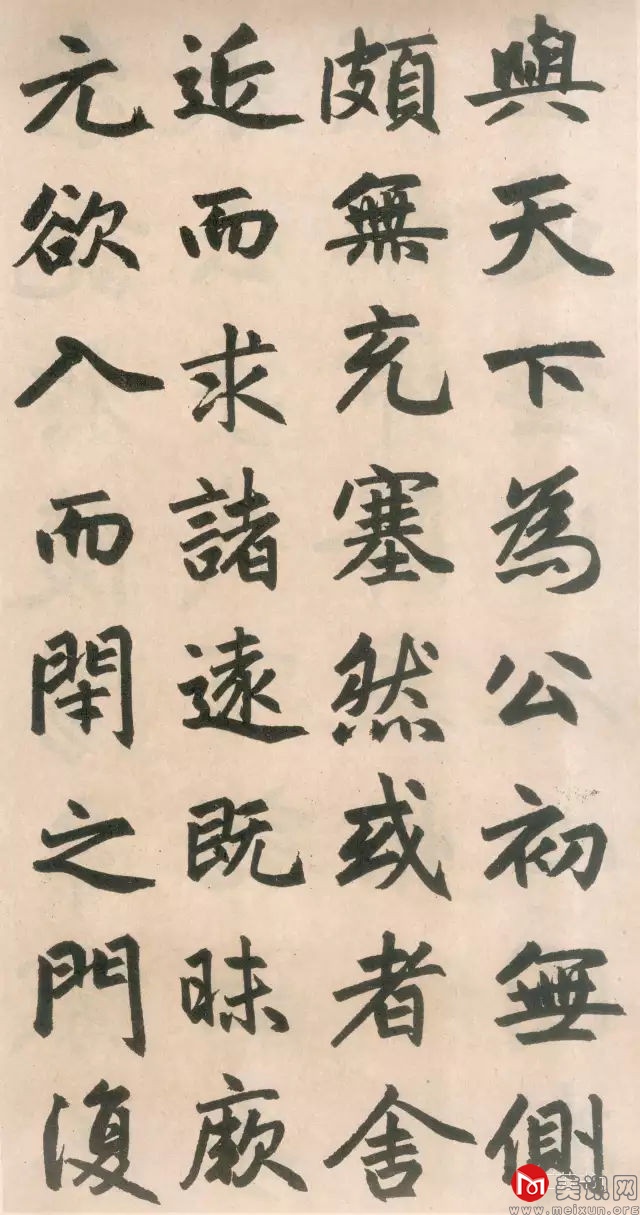 與天下為公初無側
頗無充塞然或者舍
近而求諸遠既昧厥
元欲入而閇之門復
美讯网
www.meixun.org